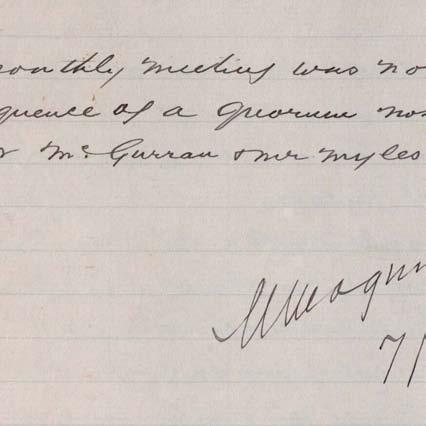 monthly meeting was no
quence of a quorum no
r Mc Gurran & mr myles
7/